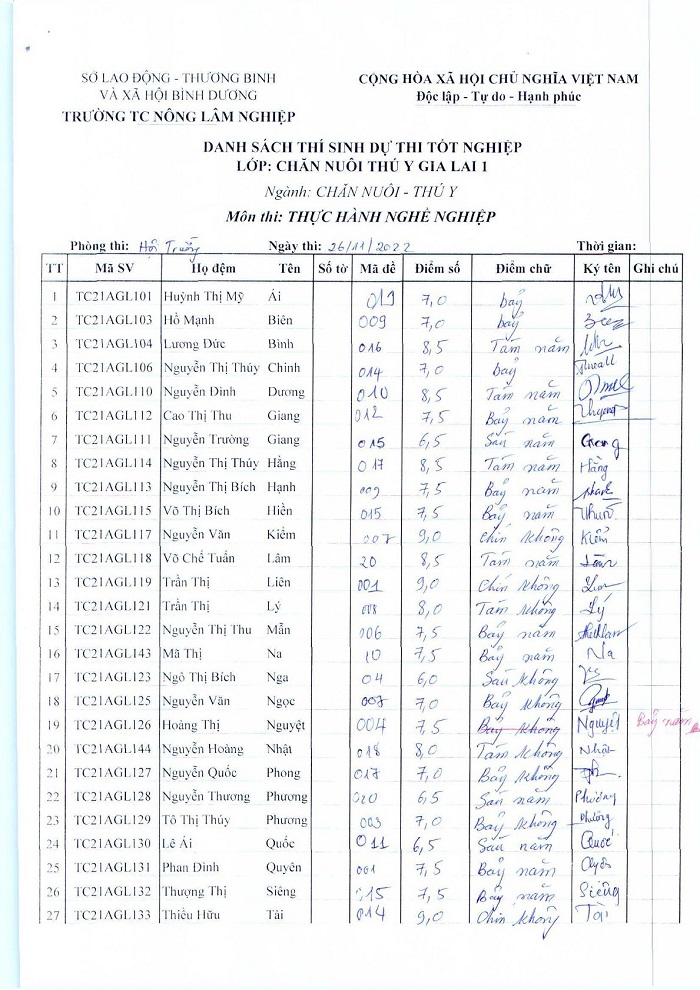 SỞ LAO ĐỘNG - THƯƠNG BINH
VÀ XÃ HỘI BÌNH DƯƠNG
TRƯỜNG TC NÔNG LÂM NGHIỆP
CỘNG HÒA XÃ HỘI CHỦ NGHĨA VIỆT NAM
Độc lập - Tự do - Hạnh phúc
DANH SÁCH THÍ SINH DỰ THI TỐT NGHIỆP
LỚP: CHĂN NUÔI THÚ Y GIA LAI 1
Ngành: CHĂN NUÔI - THÚ Y
Môn thi: THỰC HÀNH NGHỀ NGHIỆP
Phòng thi: Hội Trường Ngày thi: 26/11/2022 Thời gian:
TT Mã SV Họ đệm Tên Số tờ Mã đề Điểm số Điểm chữ Ký tên Ghi chú
1 TC21AGL101 Huỳnh Thị Mỹ Ái 019 7,0 bảy
2 TC21AGL103 Hồ Mạnh Biên 009 7,0 bảy
3 TC21AGL104 Lương Đức Bình 016 8,5 Tám năm
4 TC21AGL106 Nguyễn Thị Thúy Chinh 014 7,0 bảy
5 TC21AGL110 Nguyễn Đình Dương 010 8,5 Tám năm
6 TC21AGL112 Cao Thị Thu Giang 012 7,5 Bảy năm
7 TC21AGL111 Nguyễn Trường Giang 015 6,5 Sáu năm Giang
8 TC21AGL114 Nguyễn Thị Thúy Hằng 017 8,5 Tám năm Hằng
9 TC21AGL113 Nguyễn Thị Bích Hạnh 009 7,5 Bảy năm
10 TC21AGL115 Võ Thị Bích Hiền 015 7,5 Bảy năm
11 TC21AGL117 Nguyễn Văn Kiểm 007 9,0 Chín không Kiểm
12 TC21AGL118 Võ Chế Tuấn Lâm 20 8,5 Tám năm
13 TC21AGL119 Trần Thị Liên 001 9,0 Chín không
14 TC21AGL121 Trần Thị Lý 008 8,0 Tám không Lý
15 TC21AGL122 Nguyễn Thị Thu Mẫn 006 7,5 Bảy năm
16 TC21AGL143 Mã Thị Na 10 7,5 Bảy năm Na
17 TC21AGL123 Ngô Thị Bích Nga 04 6,0 Sáu không
18 TC21AGL125 Nguyễn Văn Ngọc 007 7,0 Bảy không
19 TC21AGL126 Hoàng Thị Nguyệt 004 7,5 Bảy không Nguyệt Bảy năm
20 TC21AGL144 Nguyễn Hoàng Nhật 018 8,0 Tám không Nhật
21 TC21AGL127 Nguyễn Quốc Phong 017 7,0 Bảy không
22 TC21AGL128 Nguyễn Thương Phương 020 6,5 Sáu năm Phương
23 TC21AGL129 Tô Thị Thúy Phương 003 7,0 Bảy không Phương
24 TC21AGL130 Lê Ái Quốc 011 6,5 Sáu năm Quốc
25 TC21AGL131 Phan Đình Quyên 001 7,5 Bảy năm
26 TC21AGL132 Thượng Thị Siêng 015 7,5 Bảy năm Siêng
27 TC21AGL133 Thiều Hữu Tài 014 9,0 Chín không Tài